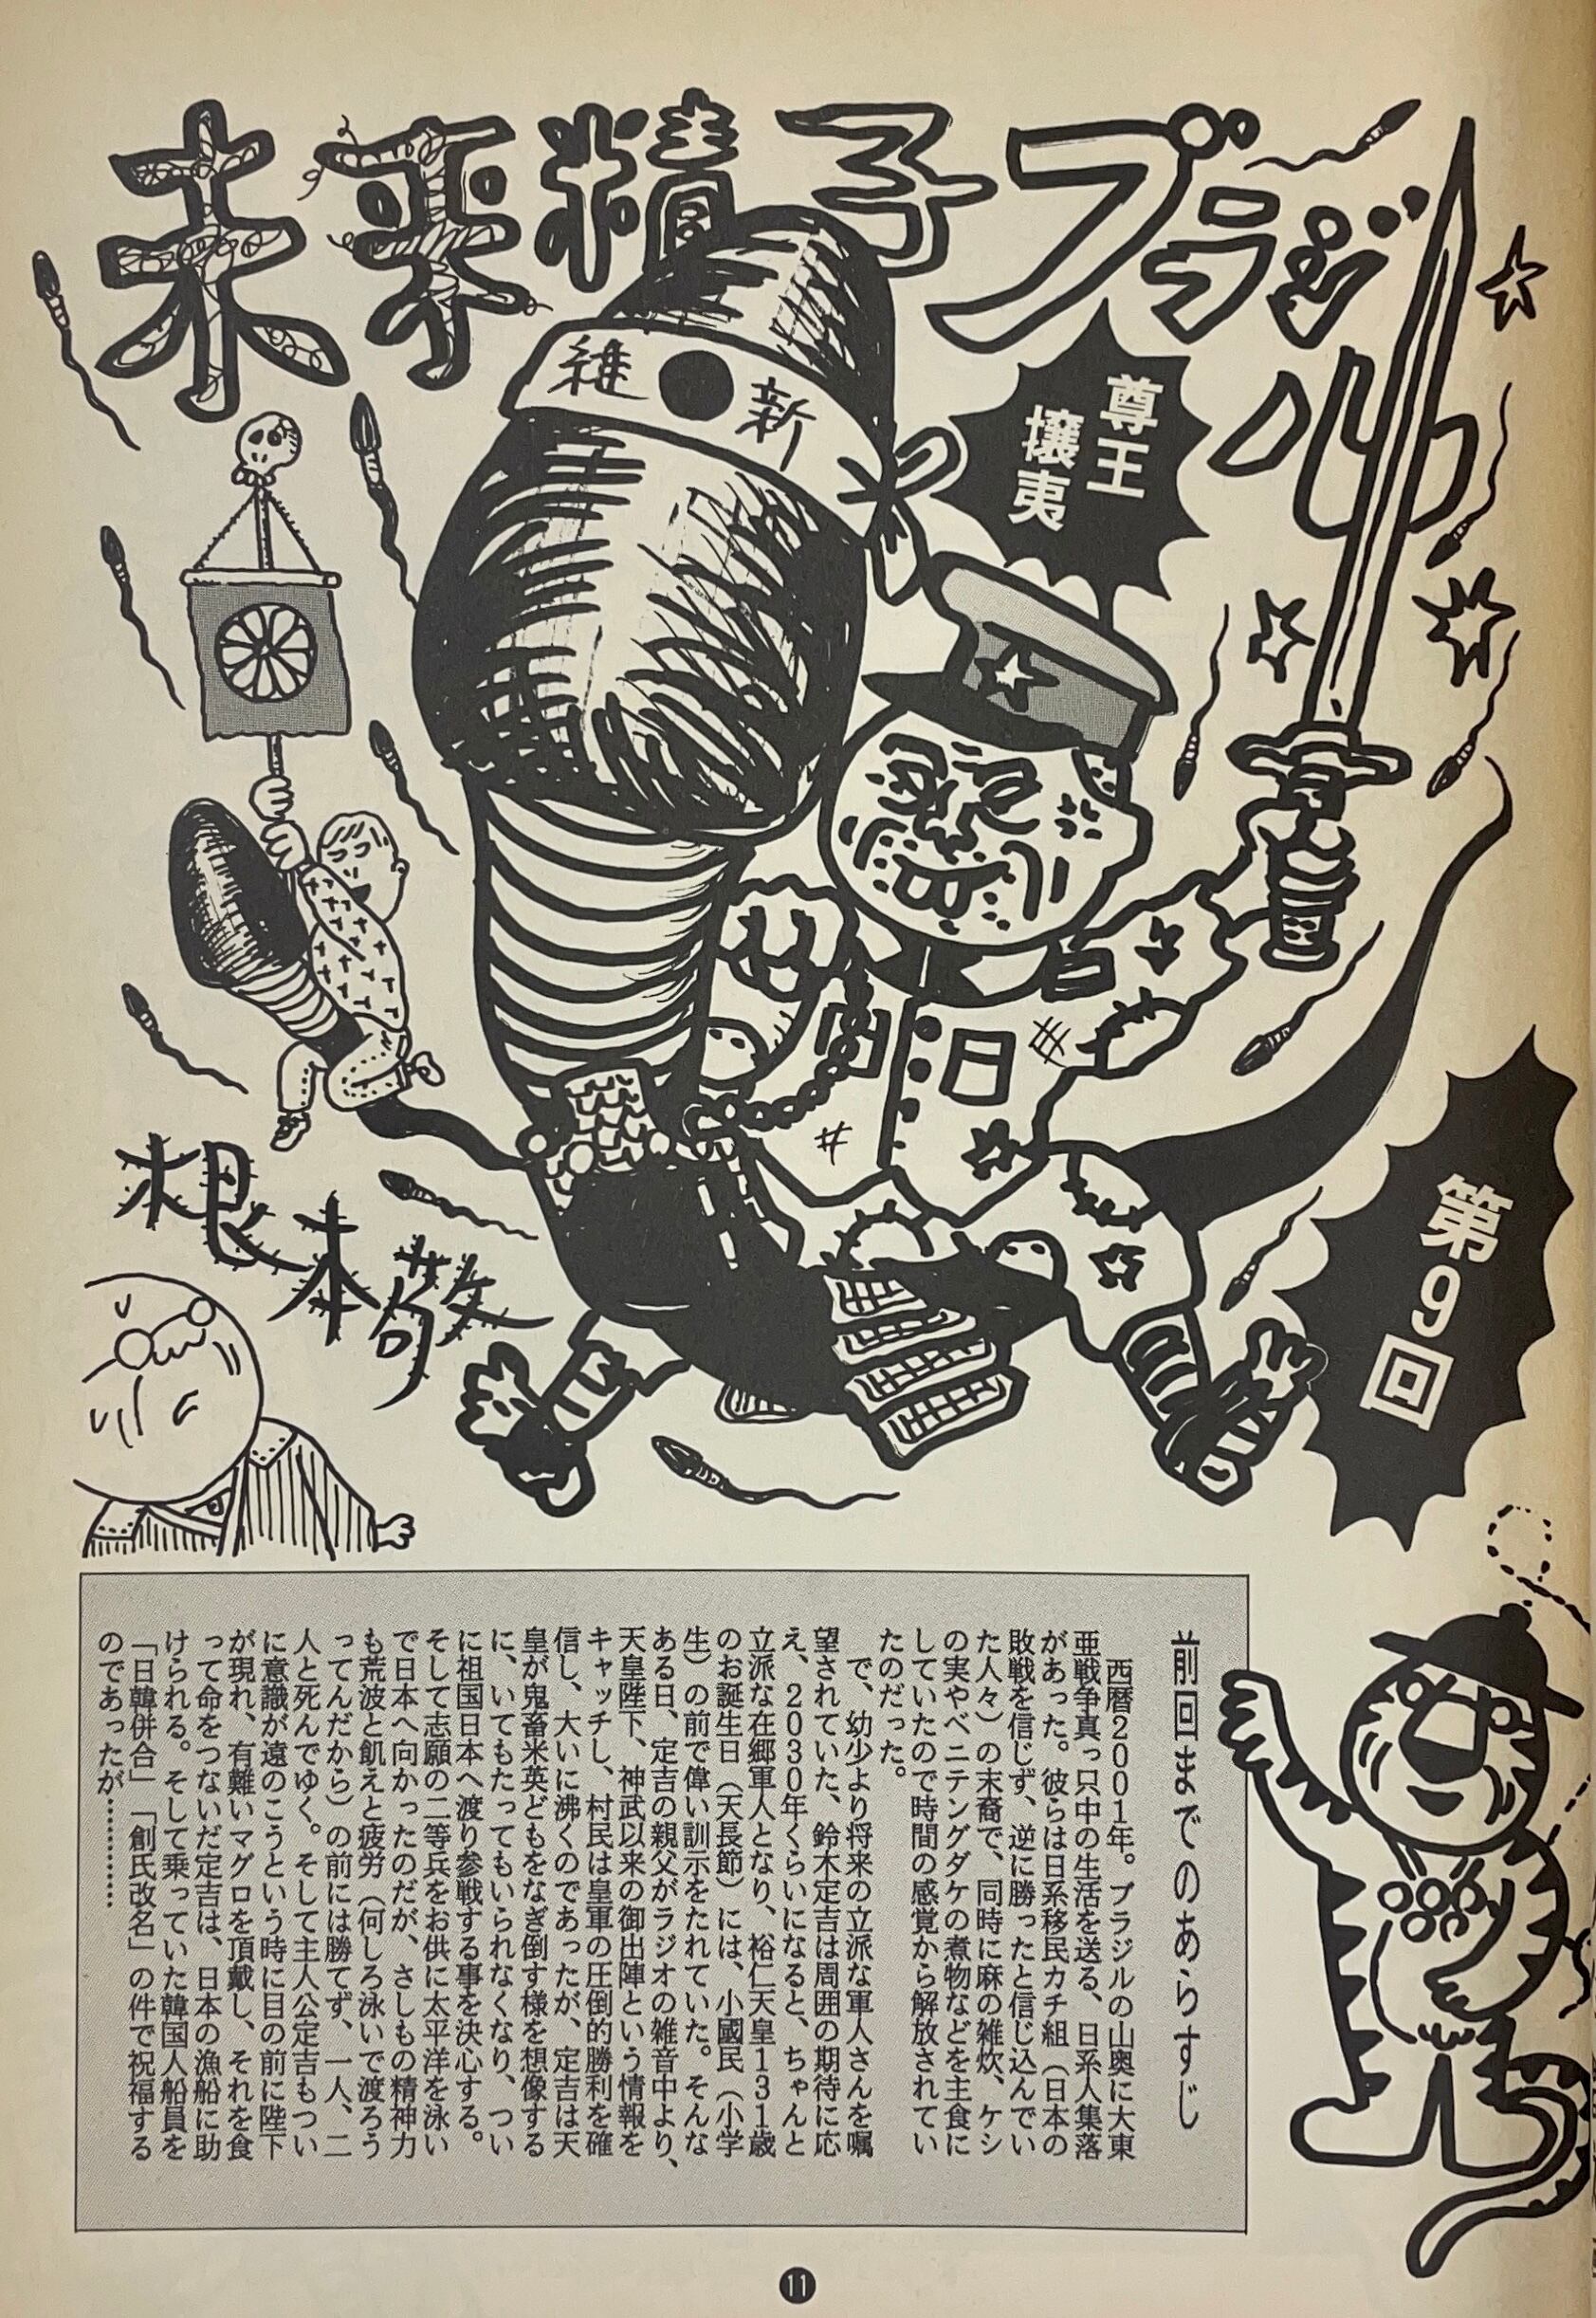 未来精子ブラジル
維新
尊王
攘夷
第9回
根本敬
前回までのあらすじ
西暦2001年。ブラジルの山奥に大東
亜戦争真っ只中の生活を送る、日系人集落
があった。彼らは日系移民カチ組（日本の
敗戦を信じず、逆に勝ったと信じ込んでい
た人々）の末裔で、同時に麻の雑炊、ケシ
の実やベニテングダケの煮物などを主食に
していたので時間の感覚から解放されてい
たのだった。
で、幼少より将来の立派な軍人さんを嘱
望されていた、鈴木定吉は周囲の期待に応
え、2030年くらいになると、ちゃんと
立派な在郷軍人となり、裕仁天皇131歳
のお誕生日（天長節）には、小國民（小学
生）の前で偉い訓示をたれていた。そんな
ある日、定吉の親父がラジオの雑音中より、
天皇陛下、神武以来の御出陣という情報を
キャッチし、村民は皇軍の圧倒的勝利を確
信し、大いに沸くのであったが、定吉は天
皇が鬼畜米英どもをなぎ倒す様を想像する
に、いてもたってもいられなくなり、つい
に祖国日本へ渡り参戦する事を決心する。
そして志願の二等兵をお供に太平洋を泳い
で日本へ向かったのだが、さしもの精神力
も荒波と飢えと疲労（何しろ泳いで渡ろう
ってんだから）の前には勝てず、一人、二
人と死んでゆく。そして主人公定吉もつい
に意識が遠のこうという時に目の前に陛下
が現れ、有難いマグロを頂戴し、それを食
って命をつないだ定吉は、日本の漁船に助
けられる。そして乗っていた韓国人船員を
「日韓併合」「創氏改名」の件で祝福する
のであったが…………
11